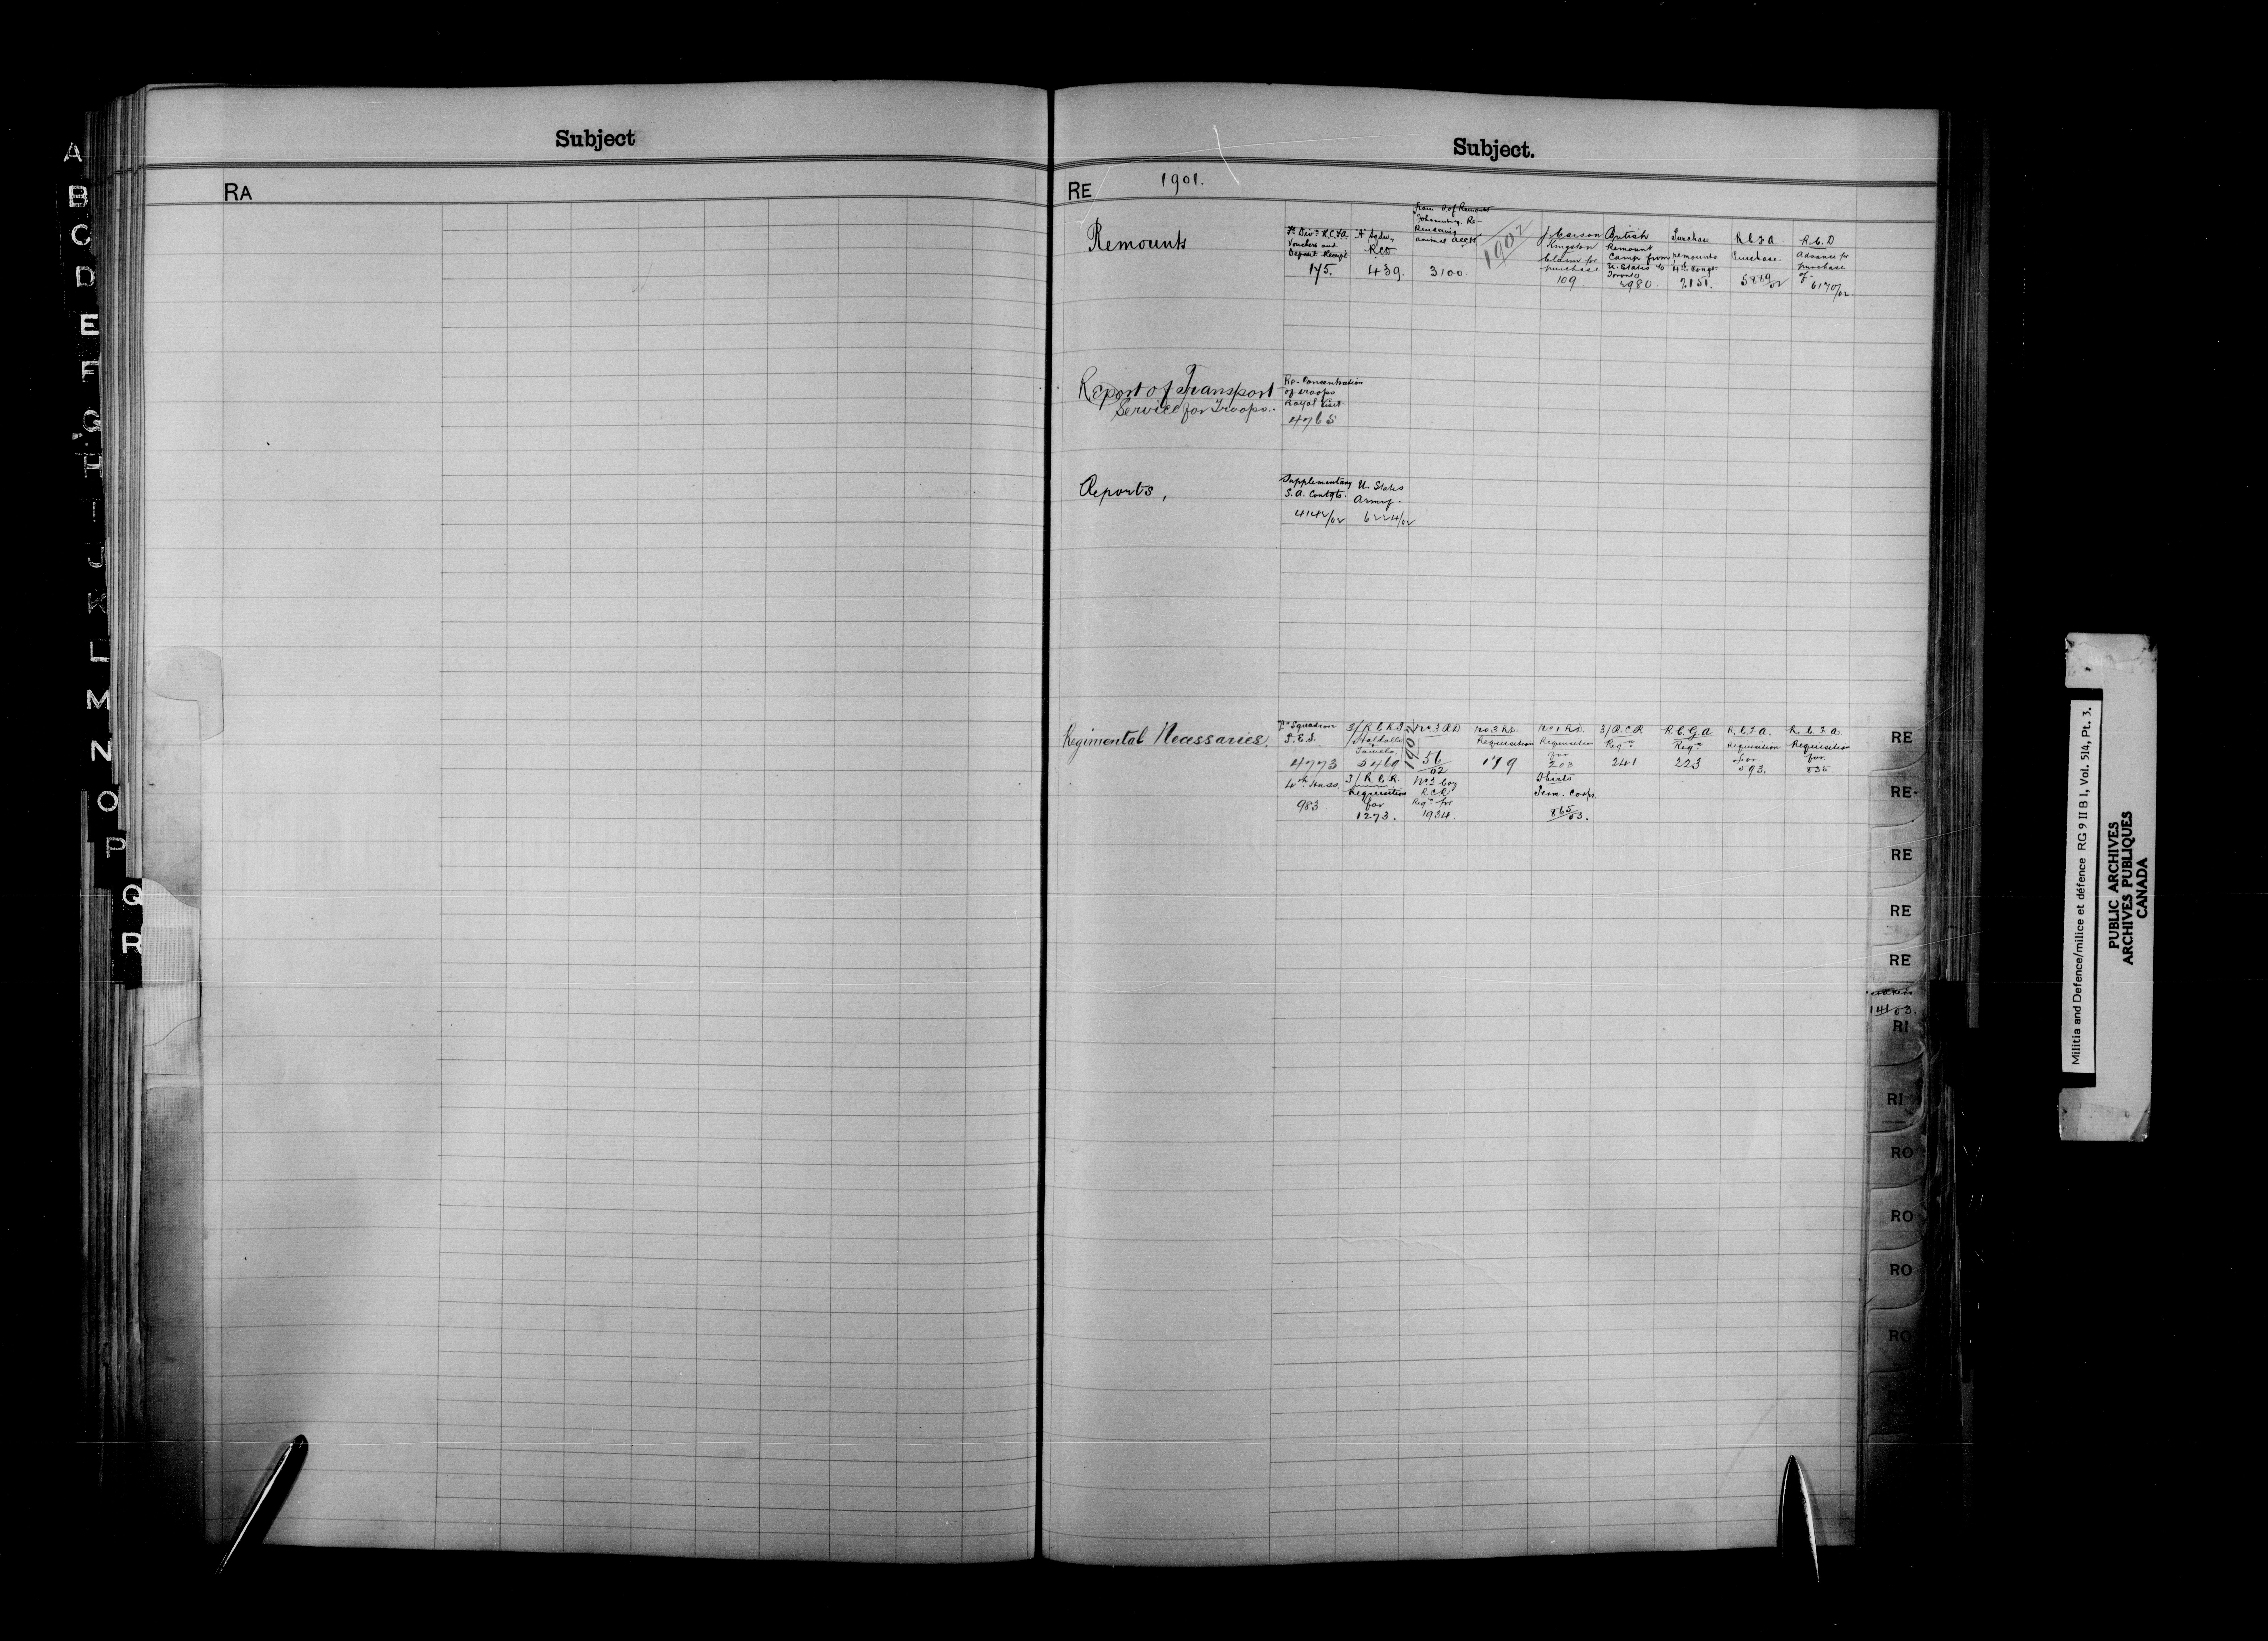 Subject
RA
A
B
C
D
E
F
G
H
I
J
K
L
M
N
O
P
Q
R
Subject.
RE 1901.
Remounts
Vouchers and
Deposit Receipt
175.
"A" Sqdn,
RCD
439.
animal
3100.
1902
J. Carson
Kingston
Claim for
purchase
109
British
Remount
Camp from
U. States to
Toronto
4980.
Purchase
remounts
4th Congt
2151.
R.C.F.A.
Purchase.
5869/02
R.C.D
Advance for
purchase
of
6170/02.
Report of Transport
Service for Troops.
Re-Concentration
of troops
Royal Visit
4765
Reports,
Supplementary
S.A. Contgts.
4142/02
U. States
Army.
6224/02
Regimental Necessaries.
Squadron
4773
3/R.C.R.I.
Towels.
5469
1902
No 3 RD
56/02
Requisition
179
Requisition
for
203
3/R.C.R
Reqn
241
R.C.G.A
Reqn
223
R.C.F.A.
Requisition
for
593.
R.C.F.A.
Requisition
for
835.
4th Huss.
983
3/R.C.R.
Requisition
for
1273.
No 2 Coy
RCR
Reqn for
1934.
Shirts
Perm. Corps.
865/03.
RE
RE
RE
RE
RE
141/03.
RI
RI
RO
RO
RO
RO
Militia and Defence/milice et défence RG 9 II B 1, Vol. 514, Pt. 3.
PUBLIC ARCHIVES
ARCHIVES PUBLIQUES
CANADA